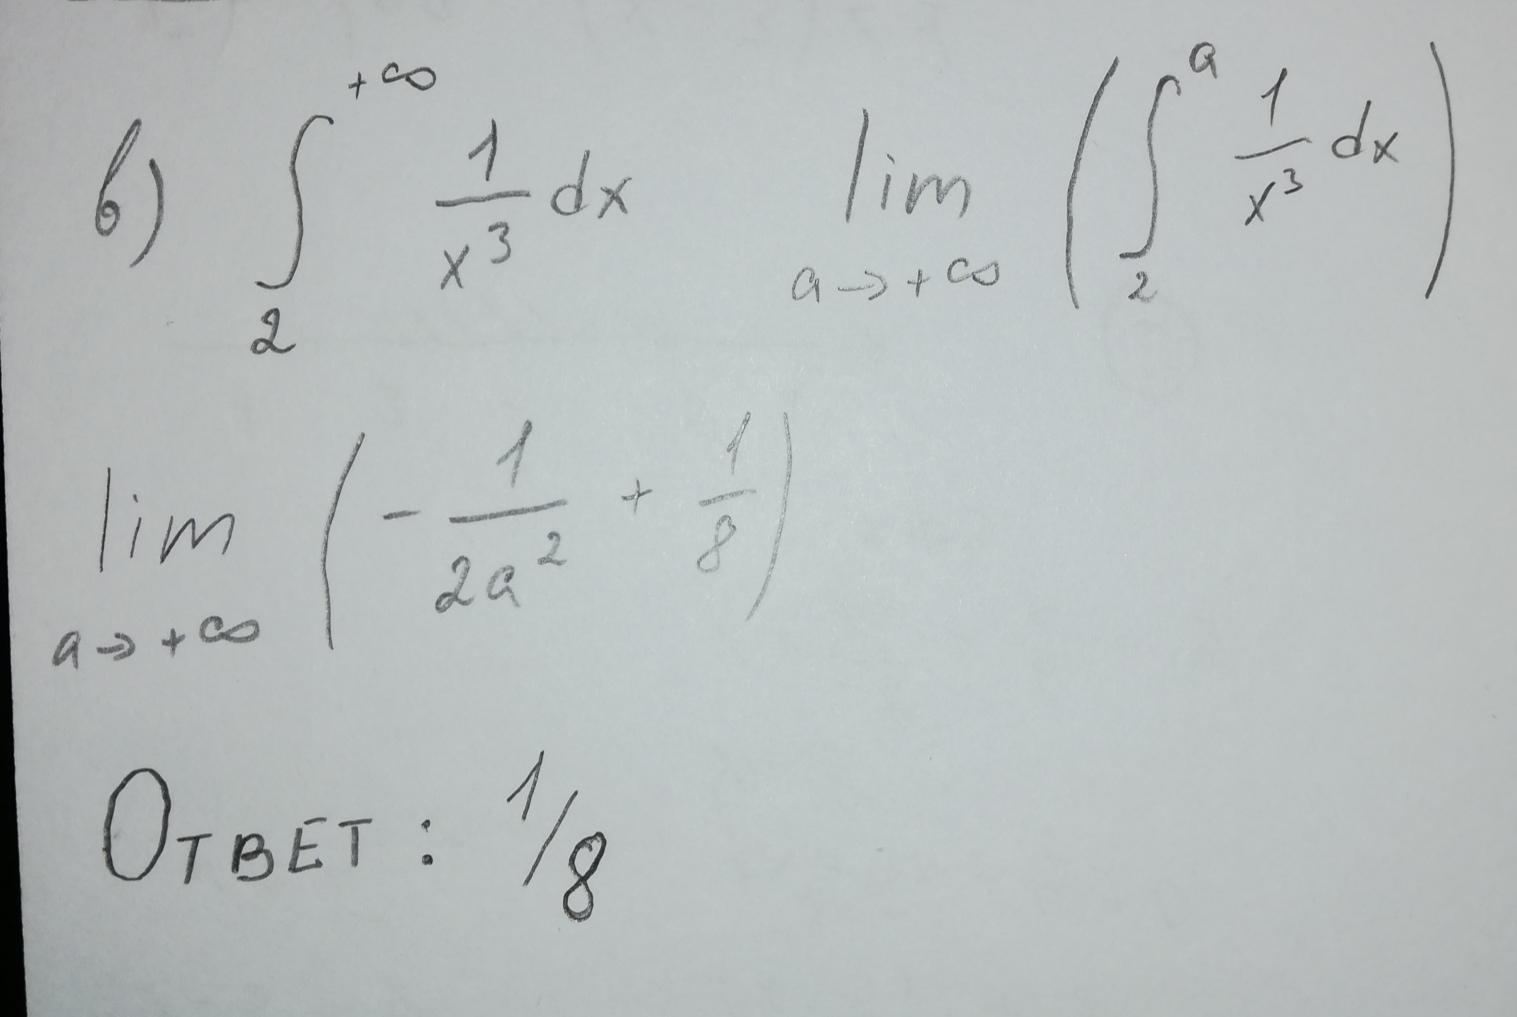 в) ∫₂^{+∞} 1/x³ dx   lim_{a→+∞} (∫₂^a 1/x³ dx)
lim_{a→+∞} (-1/2a² + 1/8)
Ответ: 1/8